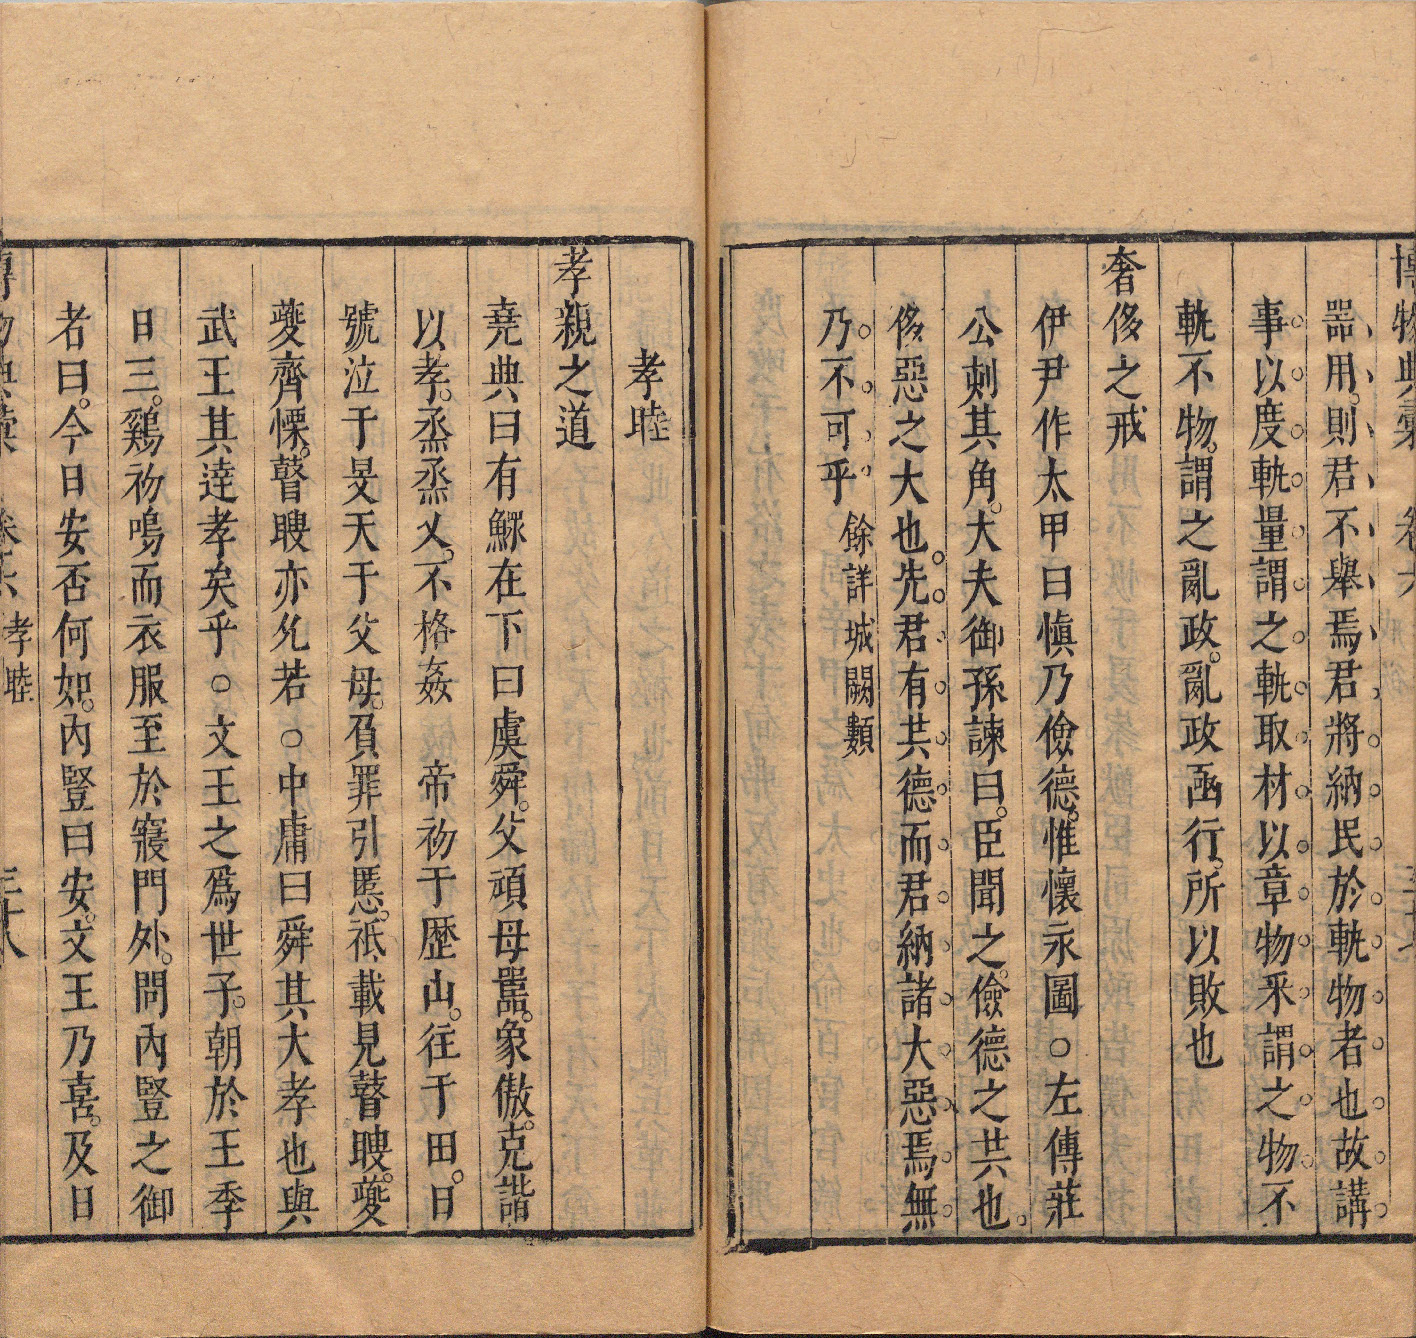 博物典彙　卷六
器用則君不舉焉君將納民於軌物者也故講
事以度軌量謂之軌取材以章物采謂之物不
軌不物謂之亂政亂政亟行所以敗也
奢侈之戒
伊尹作太甲曰慎乃儉德惟懷永圖○左傳莊
公刻其角大夫御孫諫曰臣聞之儉德之共也
侈惡之大也先君有共德而君納諸大惡焉無
乃不可乎餘詳城闕類
孝睦
孝親之道
堯典曰有鰥在下曰虞舜父頑母嚚象傲克諧
以孝烝烝乂不格姦　帝初于歷山往于田日
號泣于旻天于父母負罪引慝祗載見瞽瞍夔
夔齊慄瞽瞍亦允若○中庸曰舜其大孝也與
武王其達孝矣乎○文王之爲世子朝於王季
日三鷄初鳴而衣服至於寢門外問內豎之御
者曰今日安否何如內豎曰安文王乃喜及日
博物典彙　孝睦　三十八